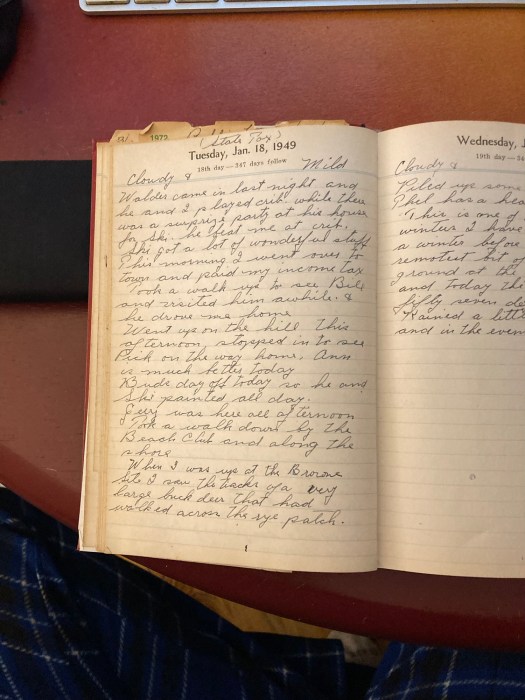 1972
(State Tax)
Tuesday, Jan. 18, 1949
18th day—347 days follow
Cloudy & Mild
Walder came in last night and
he and I played crib. while there
was a surprize party at his house
for Ski. he beat me at crib.
Ski got a lot of wonderful stuff
This morning I went over to
town and paid my income tax
Took a walk up to see Bill
and visited him awhile. &
he drove me home
Went up on the hill this
afternoon, stopped in to see
Dick on the way home. Ann
is much better today
Buds day off today so he and
Ski painted all day.
Jerry was here all afternoon
Took a walk down by the
Beach Club and along the
shore
When I was up at the Browne
site I saw the tracks of a very
large buck deer that had
walked across the rye patch.
Wednesday, J
19th day—34
Cloudy &
Piled up some
Phil has a hea
This is one of
winters I have
a winter before
remotest bit of
ground at the
and today the
fifty seven de
Rained a litt
and in the even